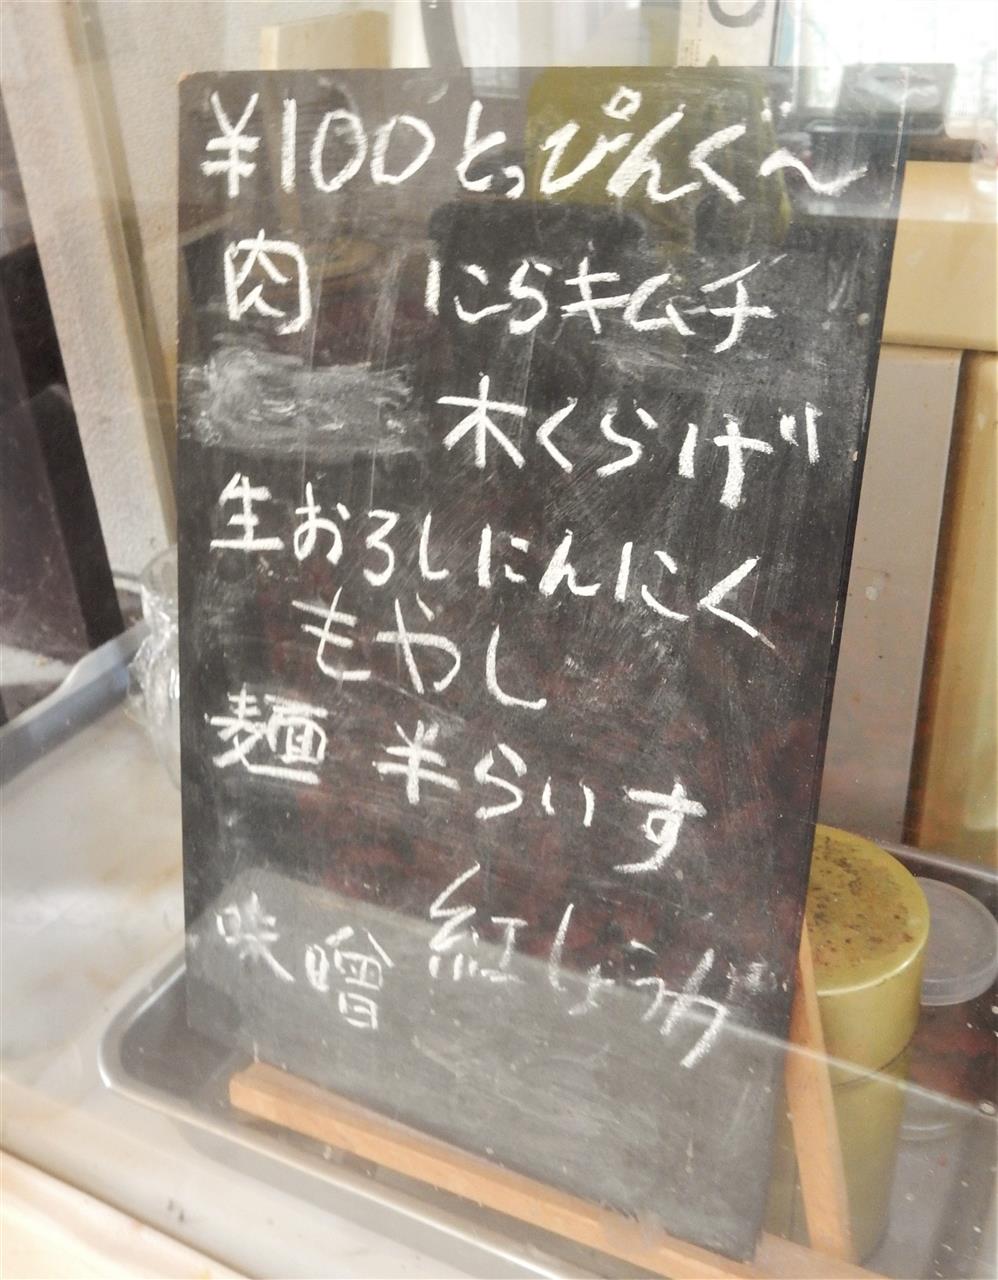 ¥100とっぴんぐ〜
肉 にらキムチ
木くらげ
生おろしにんにく
もやし
麺 半らいす
味噌 紅しょうが